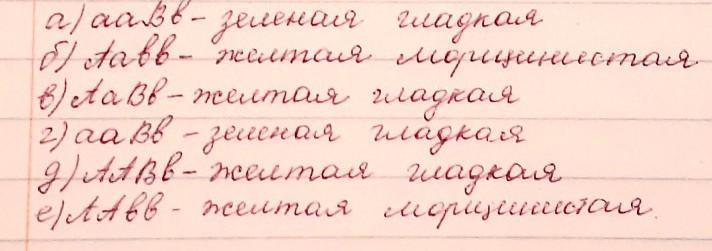 а) ааВв - зеленая гладкая
б) Аавв - желтая морщинистая
в) АаВв - желтая гладкая
г) ааВв - зеленая гладкая
д) ААВв - желтая гладкая
е) ААвв - желтая морщинистая